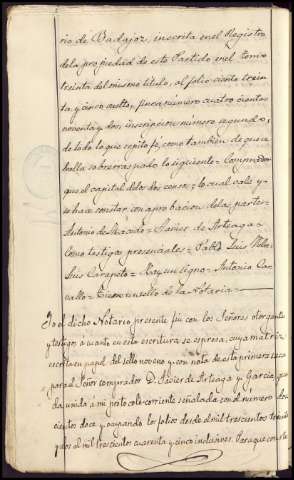 rio de Badajoz, inscrita en el Registro
de la propiedad de este Partido en el tomo
treinta del mismo titulo, al folio ciento trein
ta y cinco vuelto, finca número cuatro cientos
noventa y dos, inscripcion número segundo;
de todo lo que repito fé, como tambien de que se
halla sobrerraspado lo siguiente = Comprador
que el capital de los dos censos; lo cual vale y
se hace constar con aprobacion de las partes =
Antonio de Macedo = Javier de Arteaga =
Como testigos presenciales = Luis
Luis = Hay un signo = Antonio Car
vallo = Tiene un sello de la Notaria
Yo el dicho Notario presente fui con los Señores otorgantes
y testigos a cuanto en esta escritura se espresa, cuya matriz
escrita en papel del sello noveno, y con nota de esta primera saca
para el Señor comprador D. Javier de Arteaga y Garcia, que
da unida á mi protocolo corriente señalada con el número dos
cientos doce y ocupando los folios desde el mil trescientos treinta
y dos al mil trescientos cuarenta y cinco inclusives. Para que conste